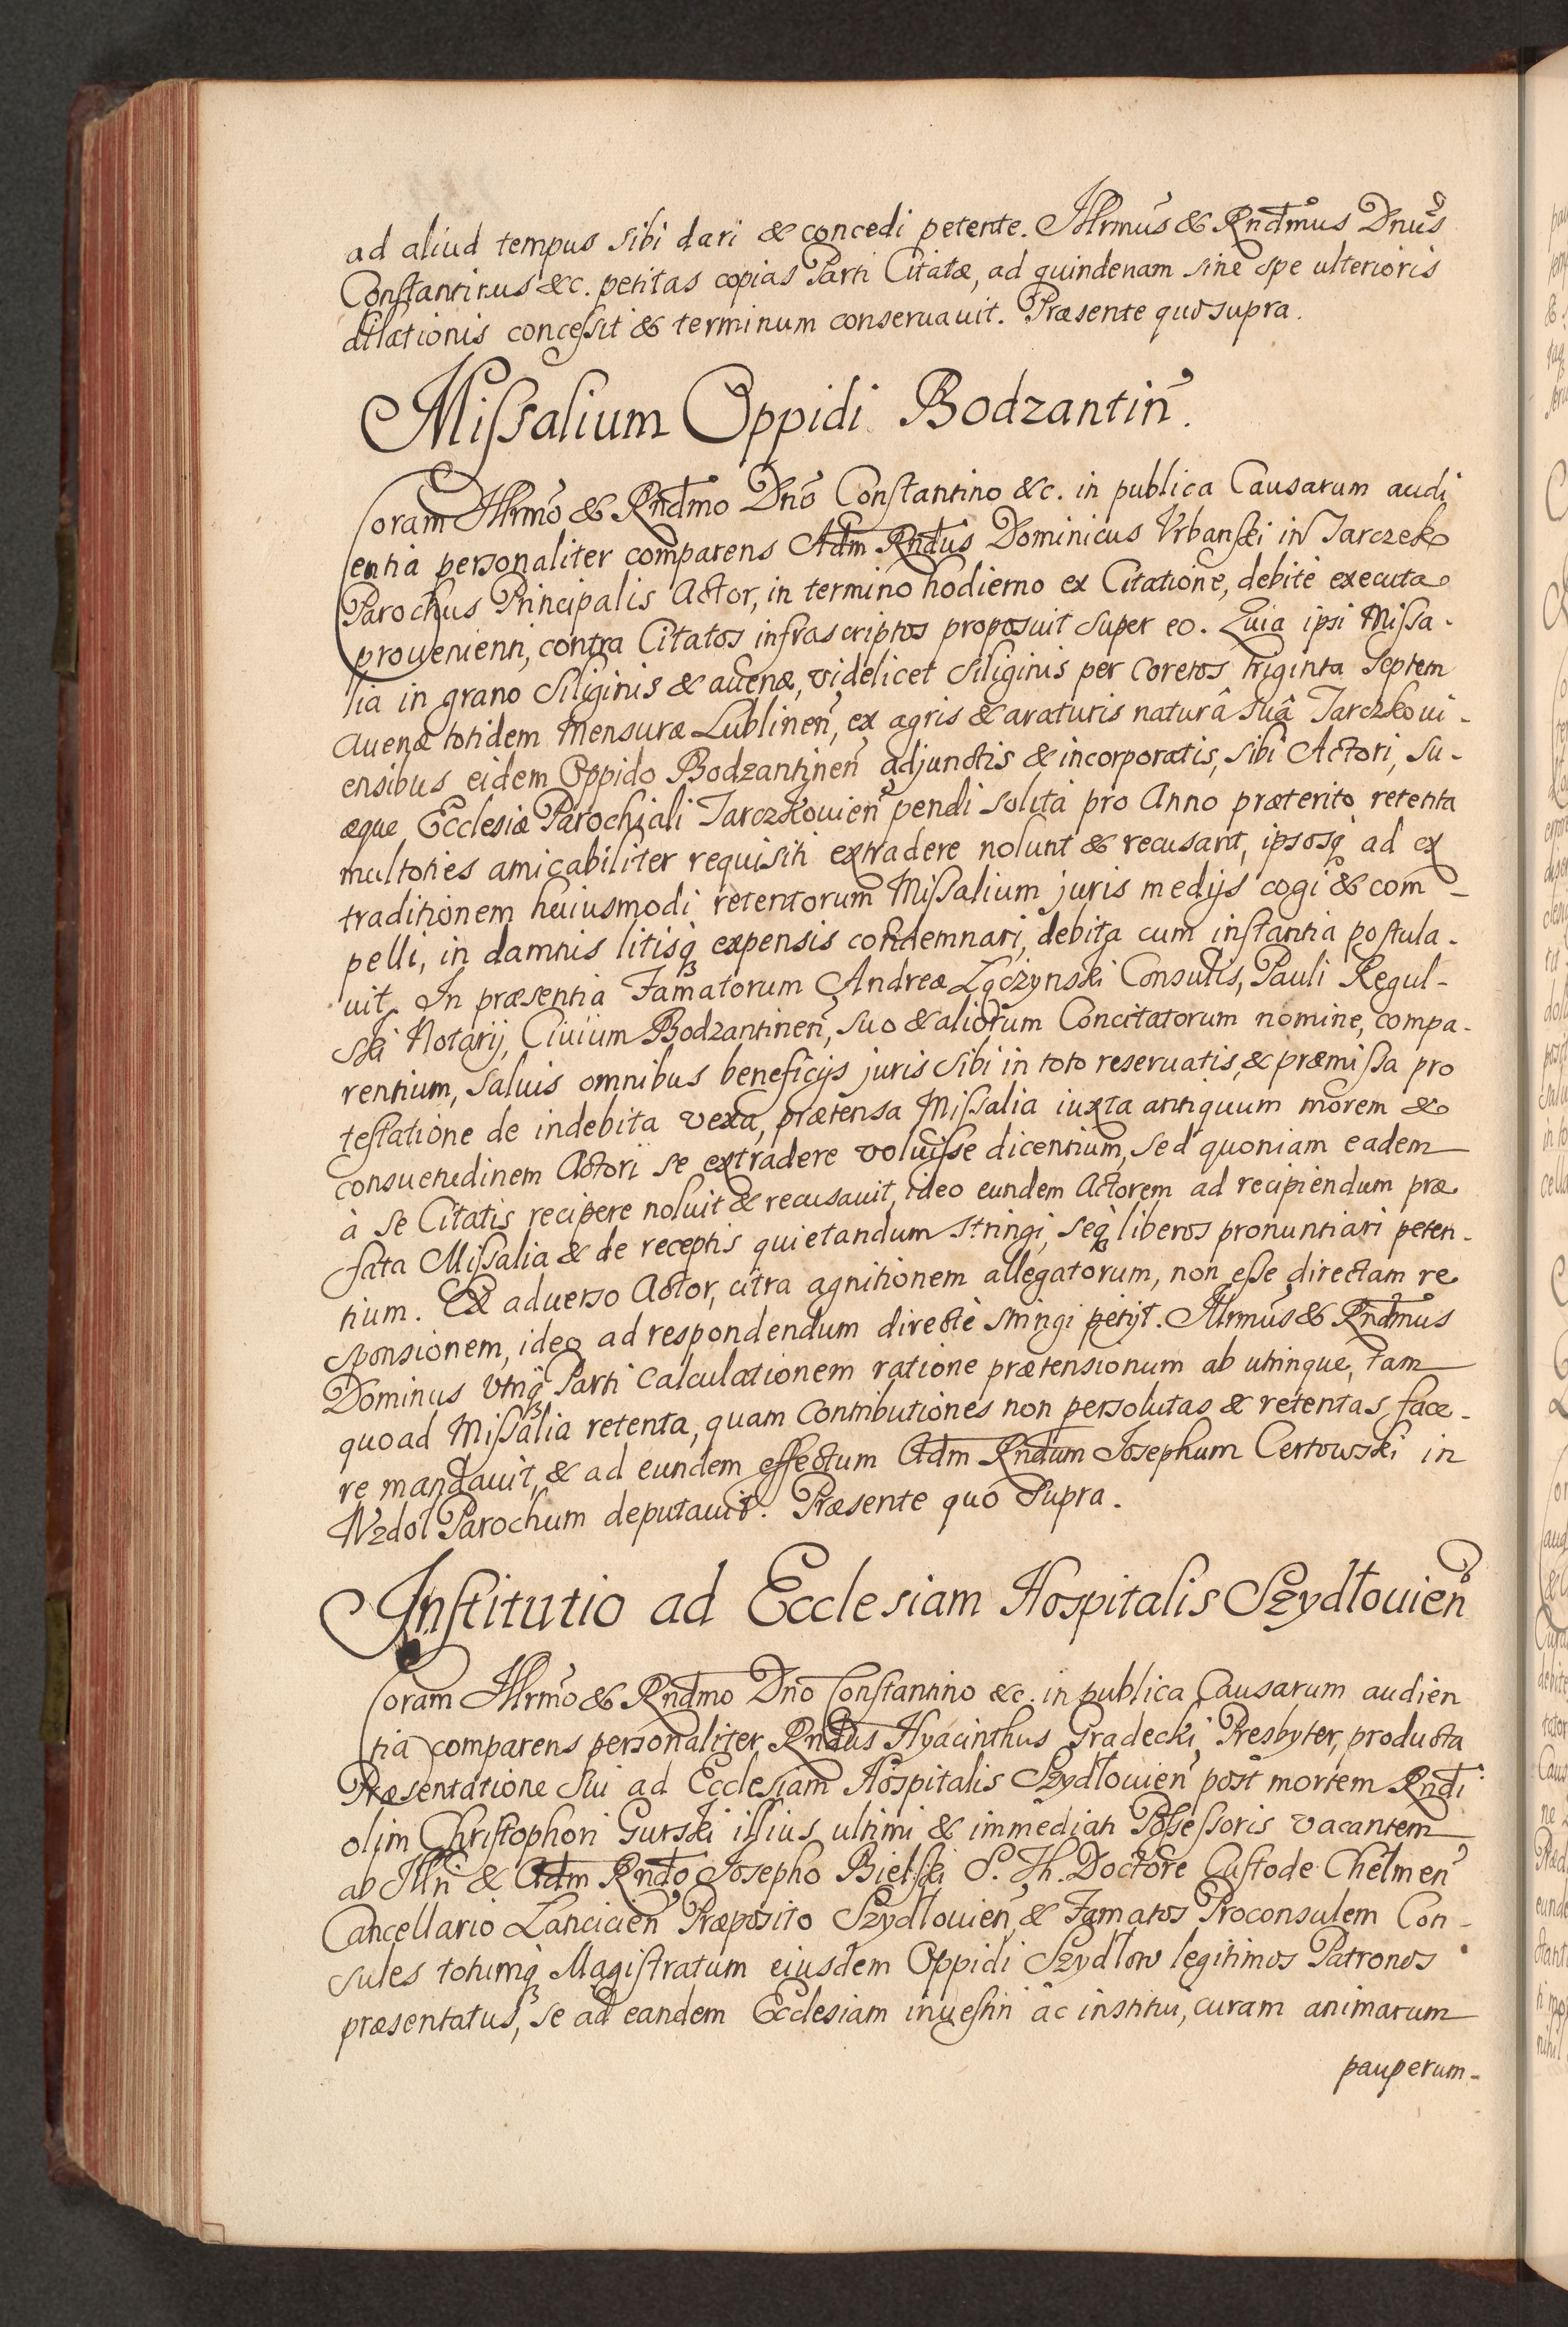 ad aliud tempus sibi dari & concedi petente. Illrmus & Rndmus Dnus
Constantinus &c. petitas copias Parti Citatæ, ad quindenam sine spe ulterioris
dilationis concessit & terminum conseruauit. Præsente quo supra.
Missalium Oppidi Bodzantin.
Coram Illrmo & Rndmo Dno Constantino &c. in publica Causarum audi
entia personaliter comparens Adm Rndus Dominicus Vrbanski in Tarczek
Parochus Principalis Actor, in termino hodierno ex Citatione, debitè executa
prouenienti, contra Citatos infrascriptos proposuit super eo. Quia ipsi Missa-
lia in grano siliginis & auenæ, videlicet siliginis per coretos triginta septem
auenæ totidem mensuræ Lublinen, ex agris & araturis naturâ suâ Tarczkoui-
ensibus eidem Oppido Bodzantinen adjunctis & incorporatis, sibi Actori, su-
æque Ecclesiæ Parochiali Tarczkouien pendi solita pro Anno præterito retenta
multoties amicabiliter requisiti extradere nolunt & recusant, ipsosq ad ex
traditionem huiusmodi retentorum Missalium juris medijs cogi & com-
pelli, in damnis litisq expensis condemnari, debita cum instantia postula-
uit. In præsentia Famatorum Andreæ Łączynski Consulis, Pauli Regul-
ski Notarij, Ciuium Bodzantinen, suo & aliorum Concitatorum nomine, compa-
rentium, saluis omnibus beneficijs juris sibi in toto reseruatis, & præmissa pro
testatione de indebita vexa, prætensa Missalia iuxta antiquum morem &
consuetudinem Actori se extradere voluisse dicentium, sed quoniam eadem
à se Citatis recipere noluit & recusauit, ideo eundem Actorem ad recipiendum præ
fata Missalia & de receptis quietandum stringi, seq liberos pronuntiari peten-
tium. Ex aduerso Actor, citra agnitionem allegatorum, non esse directam re
sponsionem, ideo ad respondendum directè stringi petijt. Illrmus & Rndmus
Dominus vtriq Parti Calculationem ratione prætensionum ab utrinque, tam
quoad Missalia retenta, quam Contributiones non persolutas & retentas, face-
re mandauit, & ad eundem effectum Adm Rndum Josephum Certowski in
Wzdoł Parochum deputauit. Præsente quo supra.
Institutio ad Ecclesiam Hospitalis Szydłouien
Coram Illrmo & Rndmo Dno Constantino &c. in publica Causarum audien
tia comparens personaliter Rndus Hyacinthus Gradecki, Presbyter, producta
Præsentatione sui ad Ecclesiam Hospitalis Szydłouien post mortem Rndi
olim Christophori Gurski illius ultimi & immediati Possessoris vacantem
ab Illri & Adm Rndo Josepho Bielski S. Th. Doctore Custode Chelmen
Cancellario Lancicien Præposito Szydłouien & Famatos Proconsulem Con-
sules totumq Magistratum eiusdem Oppidi Szydłow legitimos Patronos
præsentatus, se ad eandem Ecclesiam inuestiri ac institui, curam animarum
pauperum-